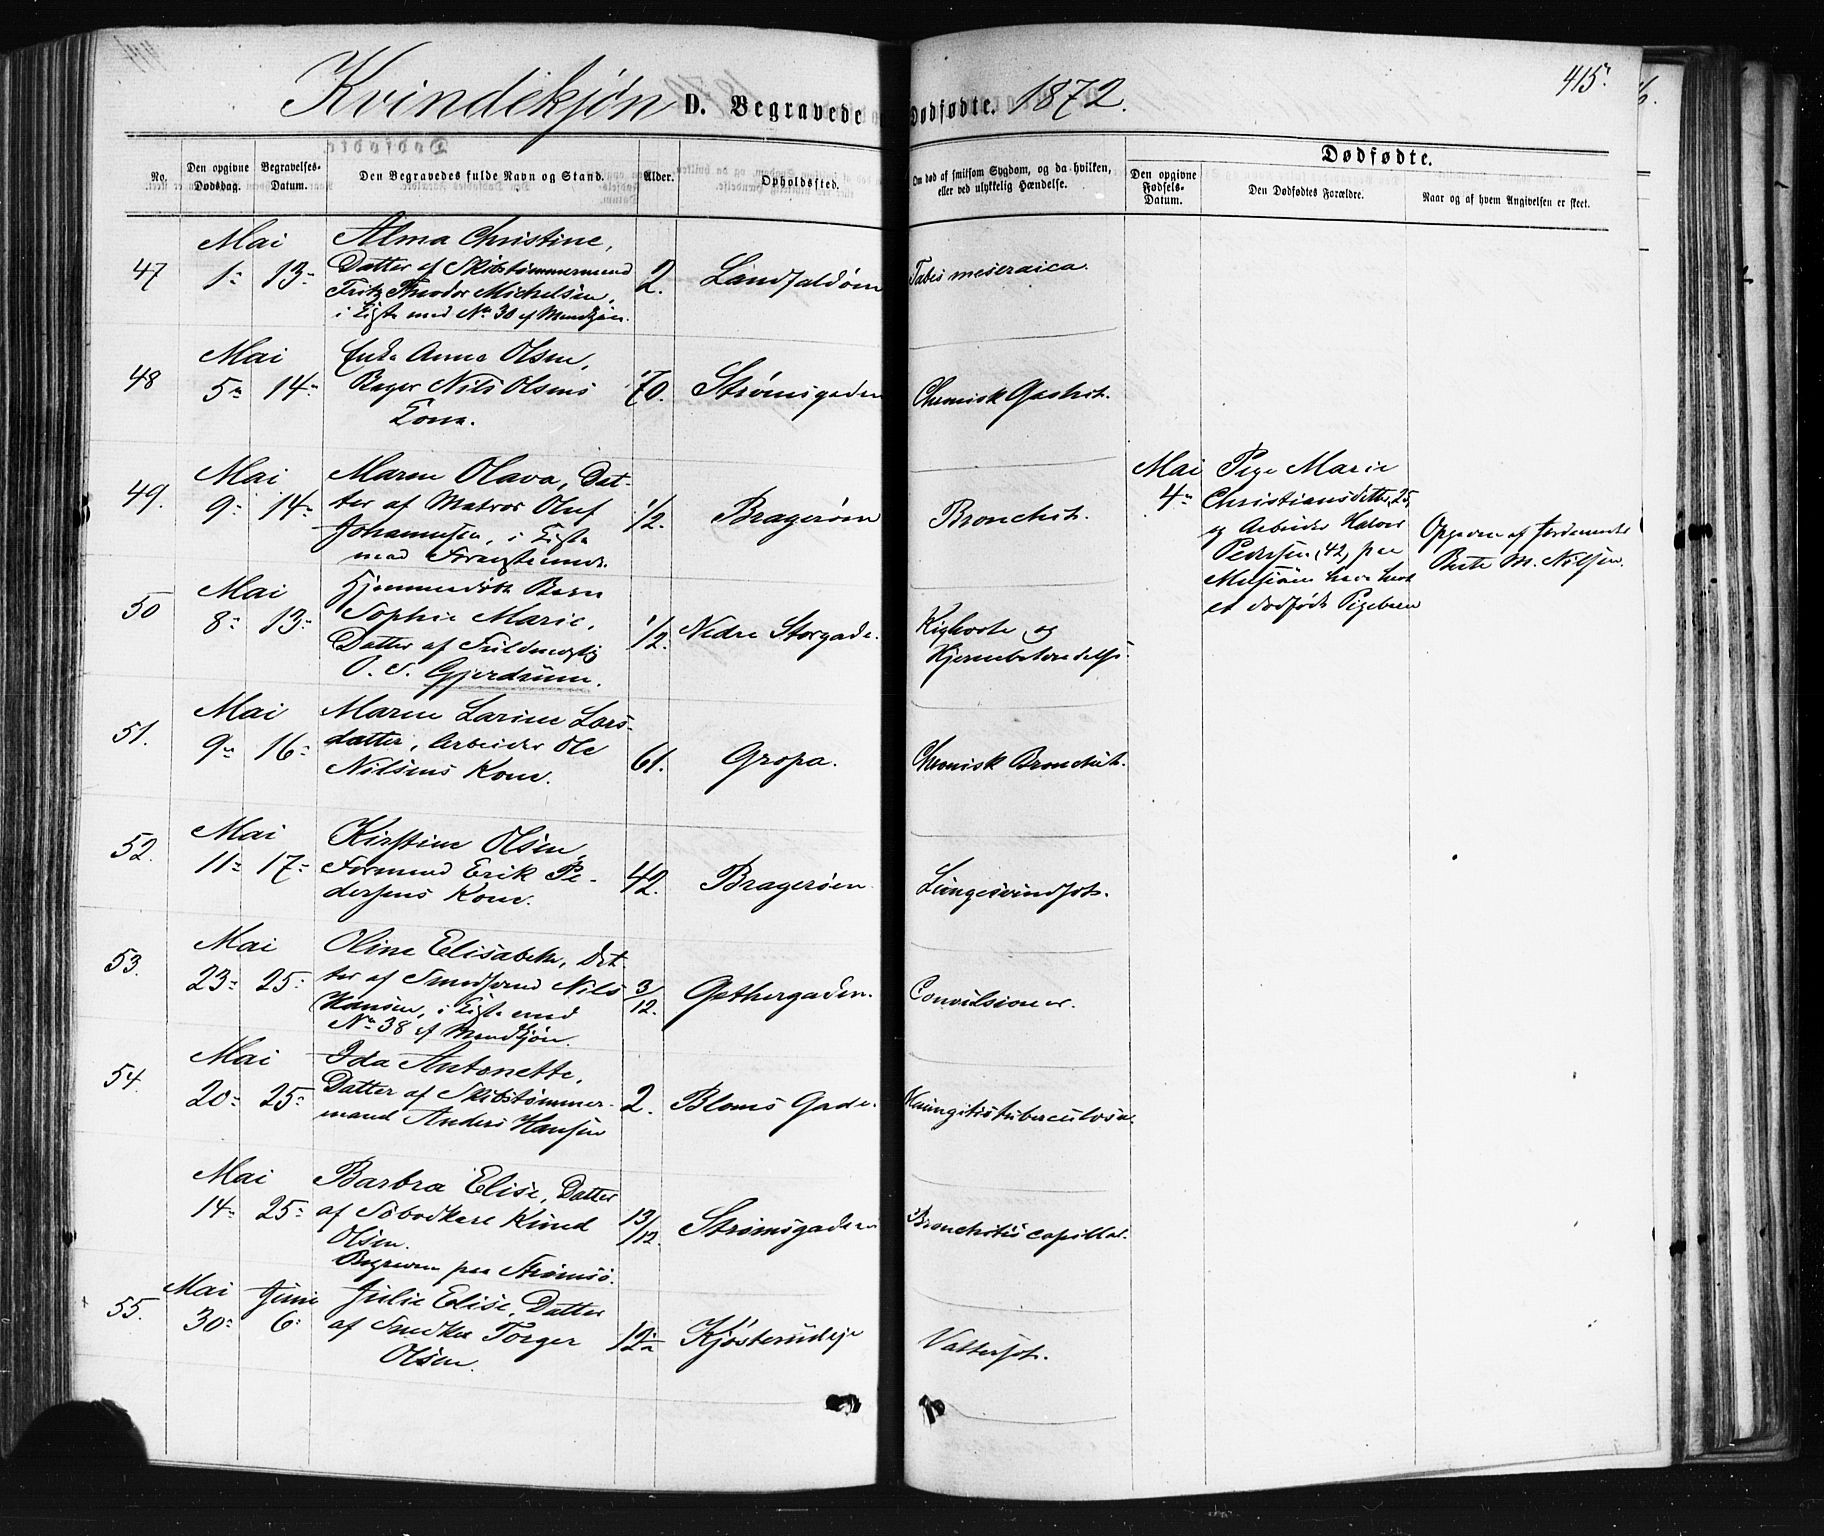 415.
Kvindekjøn D. Begravede Dødfødte. 1872.
No. Den opgivne Dødsdag. Begravelses-Datum. Den Begravedes fulde Navn og Stand. Alder. Opholdssted. Om død af smitsom Sygdom, og da hvilken, eller ved ulykkelig Hændelse. Dødfødte.
Den opgivne Fødsels-Datum. Den Dødfødtes Forældre. Naar og af hvem Angivelsen er skeet.
Mai Alma Christine,
47 1- 13- Datter af Skibstømmermand 2. Landfaldøen Tabes meseraica.
Fritz Theodor Michelsen,
i Ligte med No 30 af Mandkjøn.
Mai Enke Anne Olsen,
48 5- 14- Bager Nils Olsens 70. Strømsgaden Chronisk
Kone.
Mai Maren Olava, Dat-
49. 9- 14- ter af Matros Oluf 1/2. Bragerøen Bronchit.
Johannesen, i Ligte
med
Mai Pige Marie
4- Christiansdatter, 25,
og Arbeider Halvor
Pedersen, 42, paa
have havt
et dødfødt Pigebarn
Opgaven af Jordemoder
Berte M. Nilsen.
Mai Hjemmedøbt Barn
50 8- 13- Sophie Marie, 1/2. Nedre Storgade. Kighoste og
Datter af Fuldmægtig Hjernebetændelse.
O. S. Gjerdrum.
Mai Maren Larine Lars-
51. 9- 16- datter, Arbeider Ole 61. Gropa. Chronisk Bronchit.
Nilsens Kone.
Mai Kirstine Olsen,
52. 11- 17- Formand Erik Pe- 42. Bragerøen. Lungesvindsot.
dersens Kone.
Mai Oline Elisabeth, Dat-
53. 23- 25- ter af Smedsvend Nils 3/12. Gethergaden. Convulsioner.
Hansen, i Ligte med
No 38 af Mandkjøn.
Mai Ida Antonette,
54. 20- 25- Datter af Skibstømmer- 2. Bloms Gade. Meningitis tuberculosa.
mand Anders Hansen
Mai Barbra Elise, Datter
14- 25- af Knud 13/12. Strømsgaden Bronchitis capillar.
Olsen.
Begraven paa Strømsø.
Mai Juni Julie Elise, Datter
55. 30- 6- af Snedker Torger Kjøsterudeje Vattersot.
Olsen.